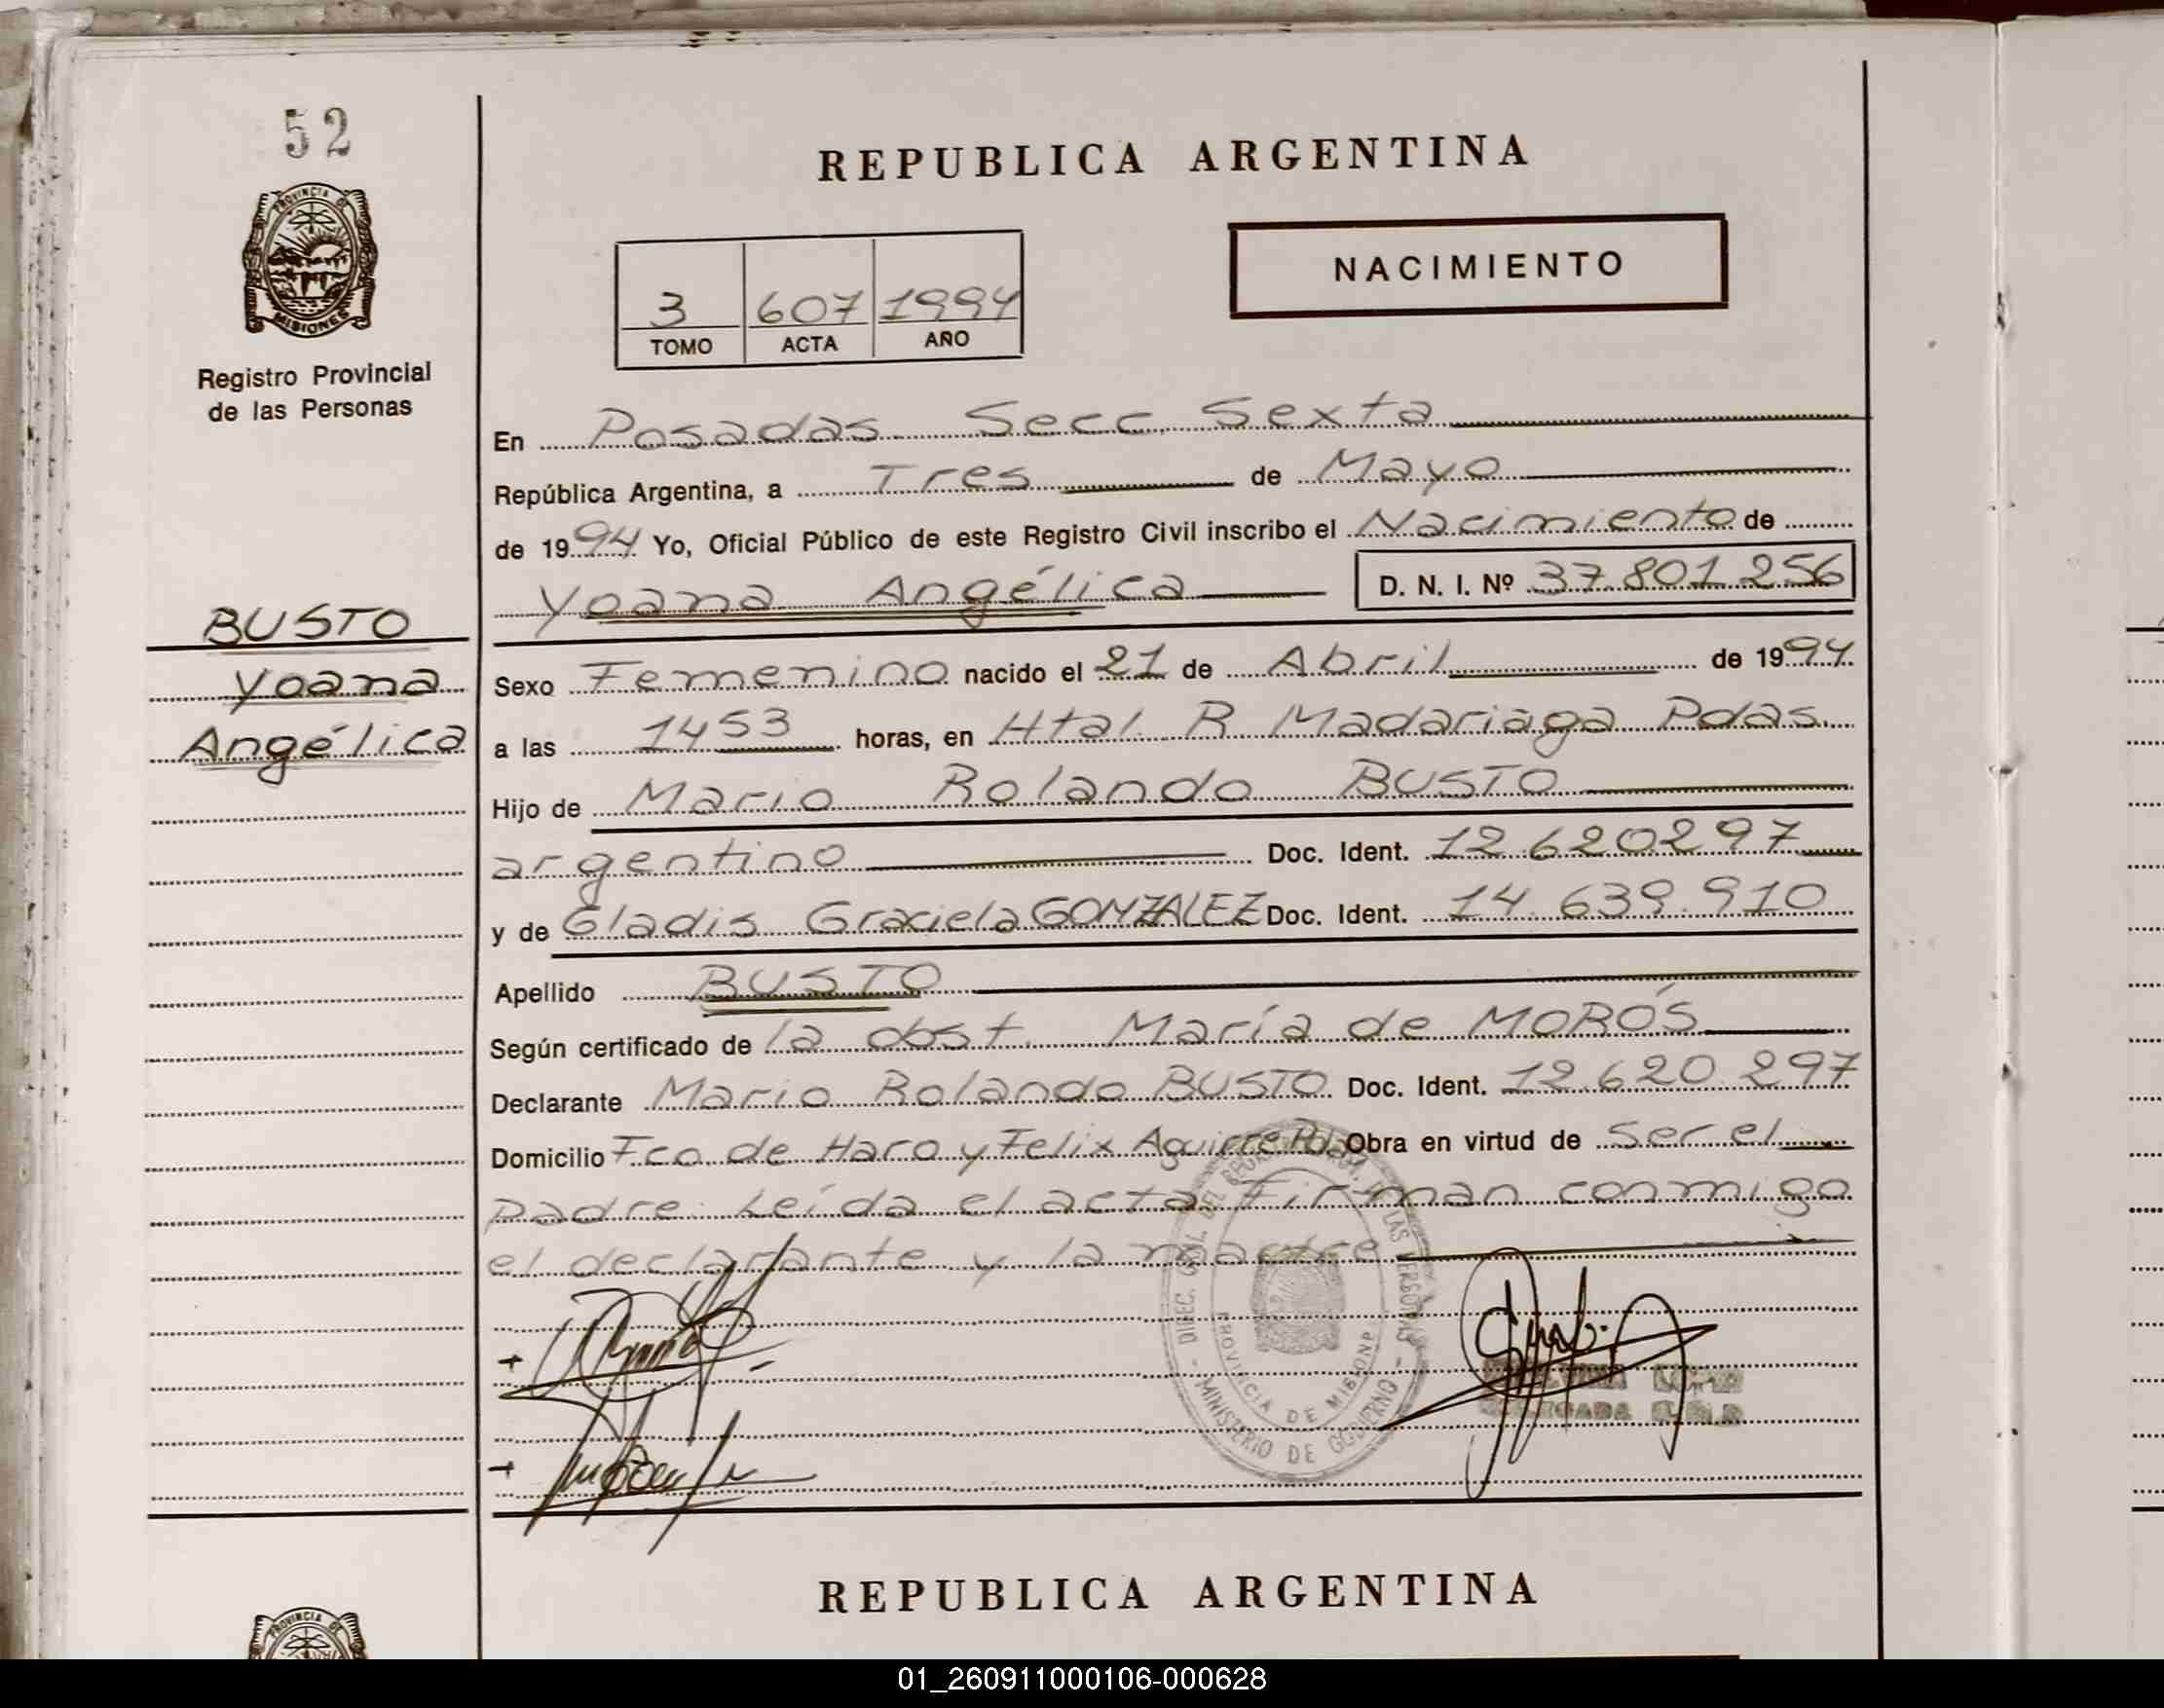 52
REPUBLICA ARGENTINA
PROVINCIA DE
MISIONES
Registro Provincial
de las Personas
NACIMIENTO
3 607 1994
TOMO ACTA AÑO
En Posadas Secc. Sexta
República Argentina, a Tres de Mayo
de 1994 Yo, Oficial Público de este Registro Civil inscribo el Nacimiento de
Yoana Angélica D. N. I. Nº 37.801.256
BUSTO
Yoana
Angélica
Sexo Femenino nacido el 21 de Abril de 1994.
a las 1453 horas, en Htal. R. Madariaga Pdas.
Hijo de Mario Rolando BUSTO
argentino Doc. Ident. 12.620.297
y de Gladis Graciela GONZALEZ Doc. Ident. 14.639.910
Apellido BUSTO
Según certificado de la obst. María de MOROS
Declarante Mario Rolando BUSTO Doc. Ident. 12.620.297
Domicilio Fco. de Haro y Felix Aguirre Obra en virtud de ser el
padre. Leída el acta firman conmigo
el declarante y la madre
MINISTERIO DE GOBIERNO
REPUBLICA ARGENTINA
PROVINCIA DE
01_260911000106-000628